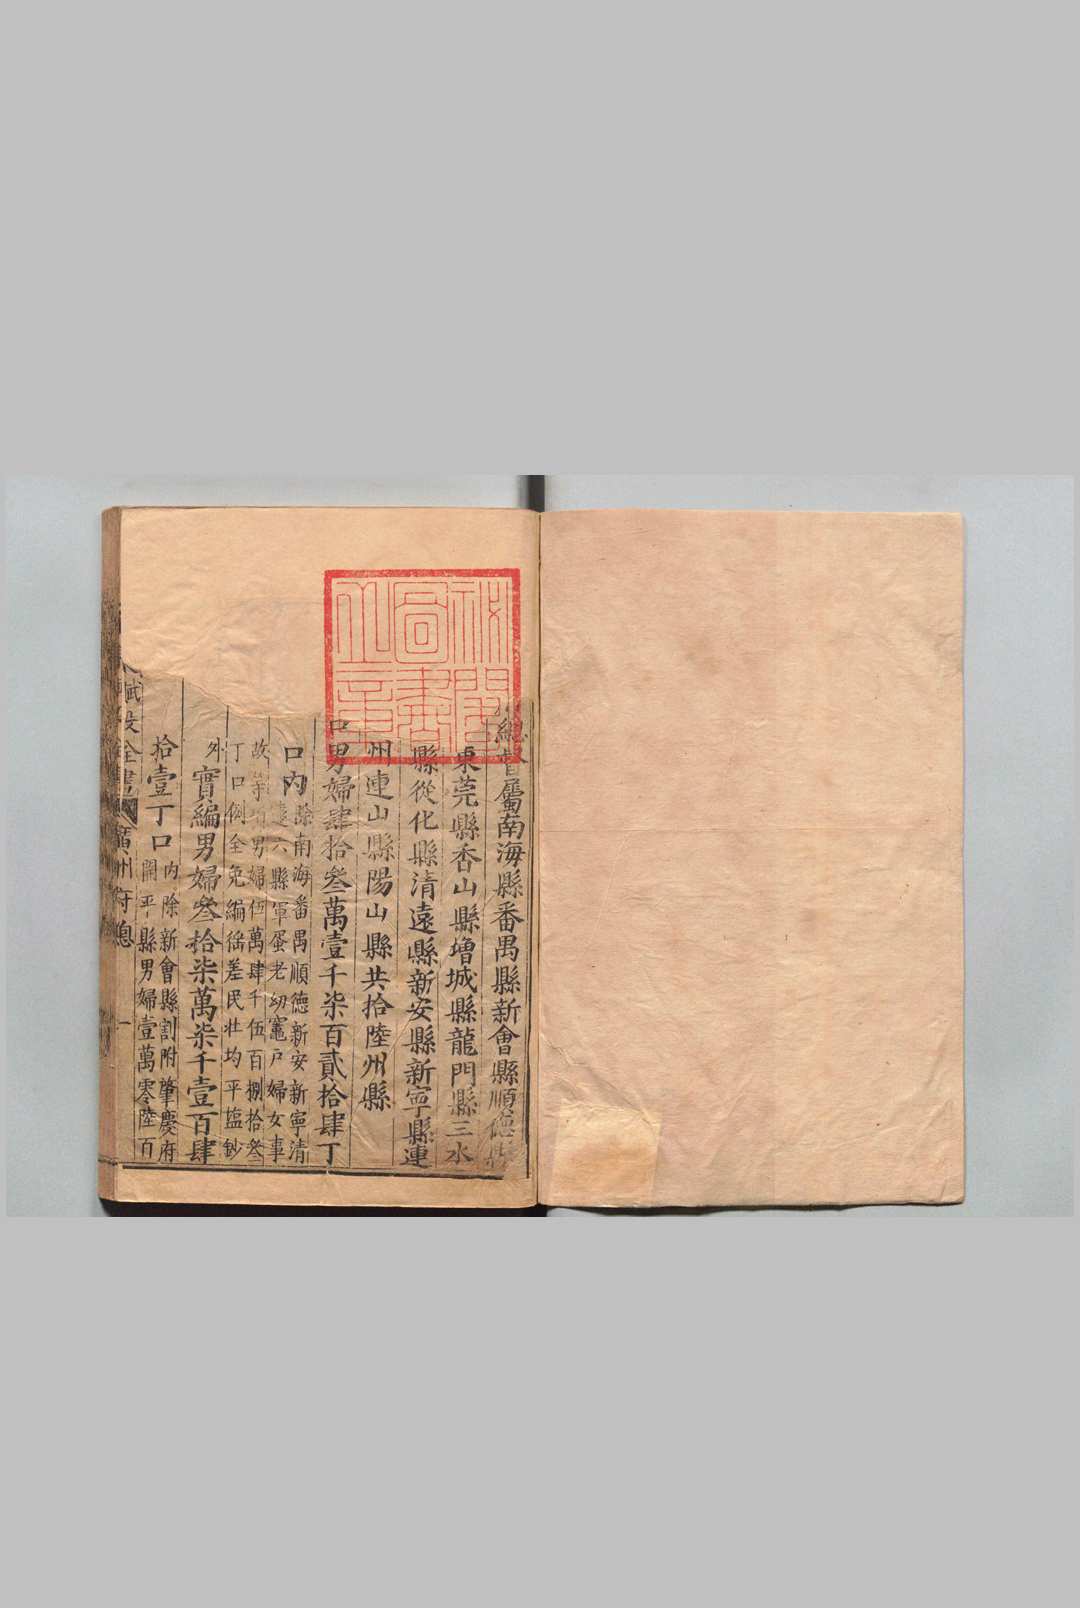 總督屬南海縣番禺縣新會縣順德縣
東莞縣香山縣增城縣龍門縣三水
縣從化縣清遠縣新安縣新寧縣連
州連山縣陽山縣共拾陸州縣
口男婦肆拾叄萬壹千柒百貳拾肆丁
口內除南海番禺順德新安新寧清
遠六縣軍蛋老幼竈戶婦女事
故等項男婦伍萬肆千伍百捌拾叄
丁口例全免編徭差民壯均平塩鈔
外實編男婦叄拾柒萬柒千壹百肆
拾壹丁口內除新會縣割附肇慶府
開平縣男婦壹萬零陸百
賦役全書 廣州府總 一
秘閣圖書之章